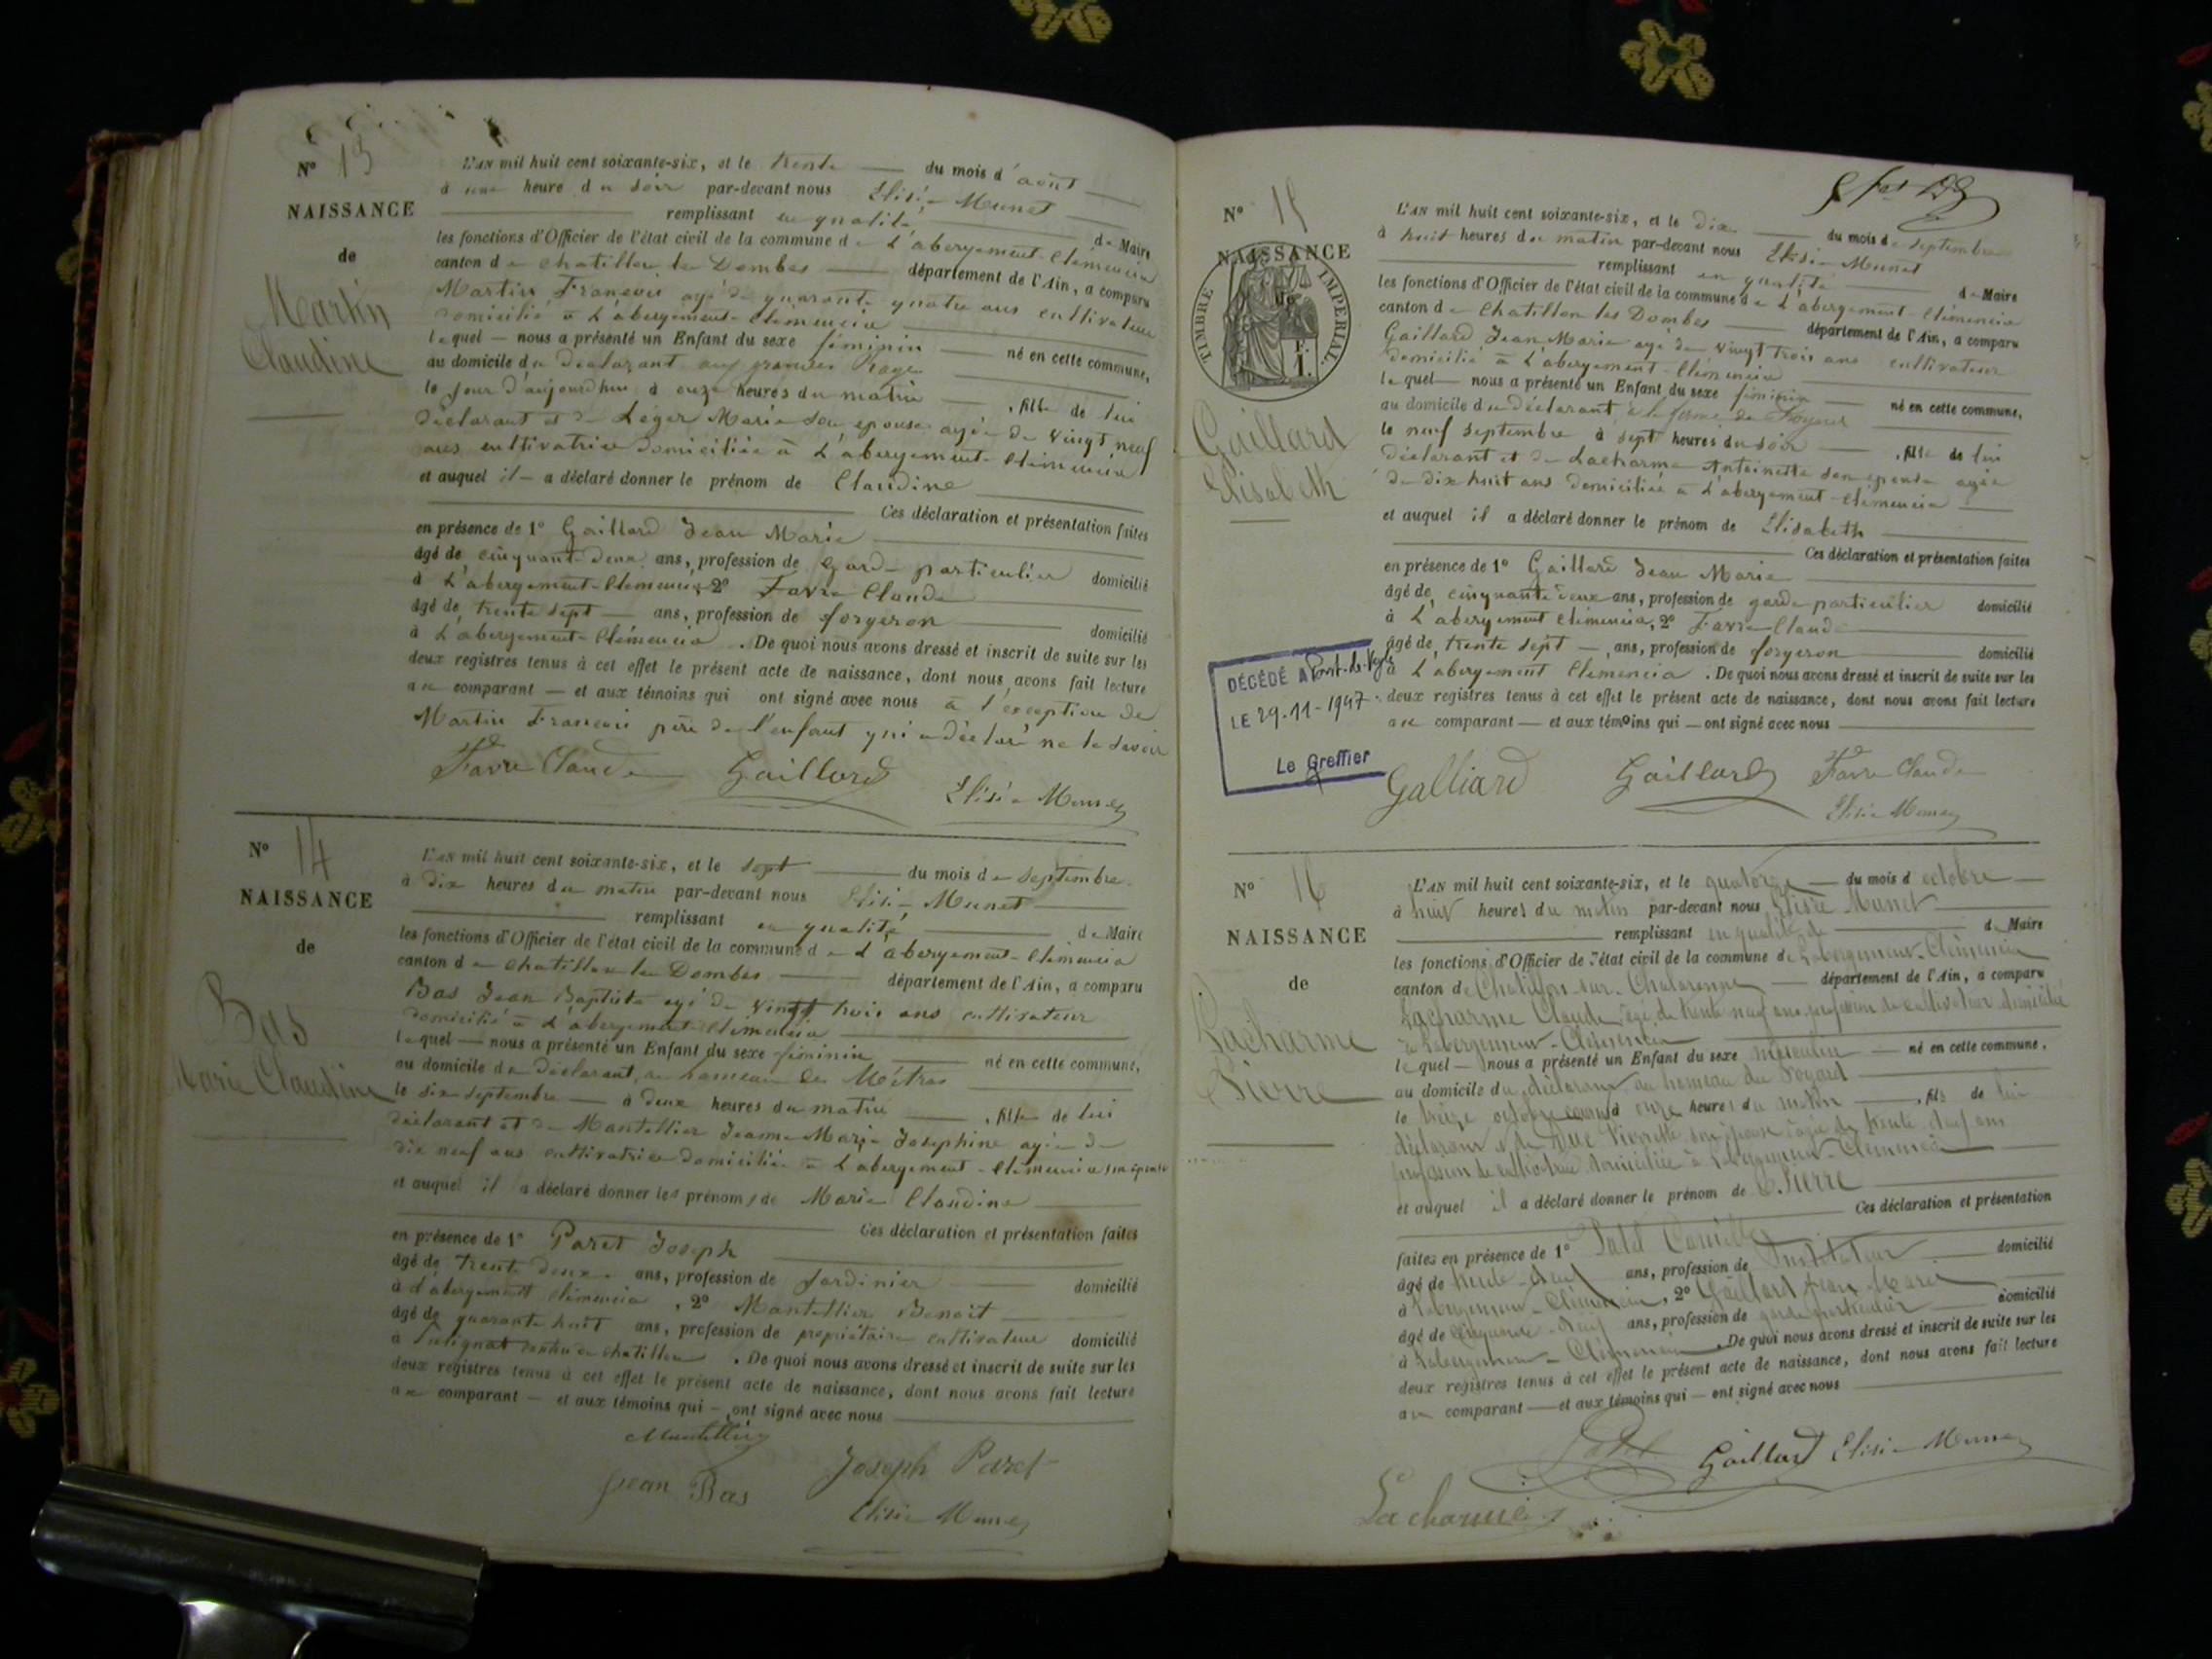 N° 13
NAISSANCE
de
Martin
Claudine
L'AN mil huit cent soixante-six, et le trente du mois d'août
à une heure du soir par-devant nous Elisée Munet
remplissant en qualité de Maire
les fonctions d'Officier de l'état civil de la commune de L'abergement-Clémencia
canton de Chatillon les Dombes département de l'Ain, a comparu
Martin Francois agé de quarante quatre ans cultivateur
domicilié à L'abergement-Clémencia
lequel — nous a présenté un Enfant du sexe féminin né en cette commune,
au domicile du déclarant aux grandes
le jour d'aujourdhui à onze heures du matin , fille de lui
déclarant et de Léger Marie son epouse agée de vingt neuf
ans cultivatrice domiciliée à L'abergement-Clémencia
et auquel il — a déclaré donner le prénom de Claudine
Ces déclaration et présentation faites
en présence de 1° Gaillard Jean Marie
âgé de cinquante deux ans, profession de garde particulier domicilié
à L'abergement-Clémencia, 2° Favre Claude
âgé de trente sept ans, profession de forgeron domicilié
à L'abergement-Clémencia . De quoi nous avons dressé et inscrit de suite sur les
deux registres tenus à cet effet le présent acte de naissance, dont nous avons fait lecture
au comparant — et aux témoins qui ont signé avec nous à l'exception de
Martin Francois père de l'enfant qui a déclaré ne le savoir
Favre Claude Gaillard
Elisée Munet
N° 14
NAISSANCE
de
Bas
Marie Claudine
L'AN mil huit cent soixante-six, et le sept du mois de septembre
à dix heures du matin par-devant nous Elisée Munet
remplissant en qualité de Maire
les fonctions d'Officier de l'état civil de la commune de L'abergement-Clémencia
canton de Chatillon les Dombes département de l'Ain, a comparu
Bas Jean Baptiste agé de vingt trois ans cultivateur
domicilié à L'abergement-Clémencia
lequel — nous a présenté un Enfant du sexe féminin né en cette commune,
au domicile du déclarant, au hameau des Métras
le six septembre — à deux heures du matin , fille de lui
déclarant et de Mantellier Jeanne Marie Josephine agée de
dix neuf ans cultivatrice domiciliée à L'abergement-Clémencia son épouse
et auquel il a déclaré donner les prénoms de Marie Claudine
Ces déclaration et présentation faites
en présence de 1° Paret Joseph
âgé de trente deux ans, profession de jardinier domicilié
à L'abergement Clémencia , 2° Mantellier Benoit
âgé de quarante huit ans, profession de propriétaire cultivateur domicilié
à Sulignat canton de chatillon . De quoi nous avons dressé et inscrit de suite sur les
deux registres tenus à cet effet le présent acte de naissance, dont nous avons fait lecture
au comparant — et aux témoins qui — ont signé avec nous
Mantellier
Jean Bas Joseph Paret
Elisée Munet
N° 15
NAISSANCE
de
TIMBRE IMPERIAL
F.
1.
Gaillard
Elisabeth
L'AN mil huit cent soixante-six, et le dix du mois de septembre
à huit heures du matin par-devant nous Elisée Munet
remplissant en qualité de Maire
les fonctions d'Officier de l'état civil de la commune de L'abergement-Clémencia
canton de Chatillon les Dombes département de l'Ain, a comparu
Gaillard Jean Marie agé de vingt trois ans cultivateur
domicilié à L'abergement-Clémencia
lequel — nous a présenté un Enfant du sexe féminin né en cette commune,
au domicile du déclarant à la ferme de
le neuf septembre à sept heures du soir , fille de lui
déclarant et de Lacharme Antoinette son épouse agée
de dix huit ans domiciliée à L'abergement-Clémencia
et auquel il a déclaré donner le prénom de Elisabeth
Ces déclaration et présentation faites
en présence de 1° Gaillard Jean Marie
âgé de cinquante deux ans, profession de garde particulier domicilié
à L'abergement Clémencia, 2° Favre Claude
âgé de trente sept — ans, profession de forgeron domicilié
à L'abergement Clémencia . De quoi nous avons dressé et inscrit de suite sur les
deux registres tenus à cet effet le présent acte de naissance, dont nous avons fait lecture
au comparant — et aux témoins qui — ont signé avec nous
DÉCÉDÉ A Pont-de-Veyle
LE 29-11-1947
Le Greffier
Galliard Gaillard Favre Claude
Elisée Munet
N° 16
NAISSANCE
de
Lacharme
Pierre
L'AN mil huit cent soixante-six, et le quatorze du mois d'octobre
à huit heures du matin par-devant nous Elisée Munet
remplissant en qualité de de Maire
les fonctions d'Officier de l'état civil de la commune de Labergement-Clémencia
canton de Chatillon-sur-Chalaronne département de l'Ain, a comparu
Lacharme Claude, âgé de trente neuf ans profession de cultivateur domicilié
à Labergement-Clémencia
lequel — nous a présenté un Enfant du sexe masculin né en cette commune,
au domicile du déclarant au hameau du Foyard
le treize octobre courant à onze heures du matin , fils de lui
déclarant et de Pierrette son épouse âgée de trente neuf ans
profession de cultivatrice domiciliée à Labergement-Clémencia
et auquel il a déclaré donner le prénom de Pierre
Ces déclaration et présentation
faites en présence de 1° Patel Camille
âgé de trente-neuf ans, profession de Instituteur domicilié
à Labergement-Clémencia, 2° Gaillard Jean-Marie
âgé de cinquante-deux ans, profession de garde particulier domicilié
à Labergement-Clémencia . De quoi nous avons dressé et inscrit de suite sur les
deux registres tenus à cet effet le présent acte de naissance, dont nous avons fait lecture
au comparant — et aux témoins qui — ont signé avec nous
Patel Gaillard Elisée Munet
Lacharme